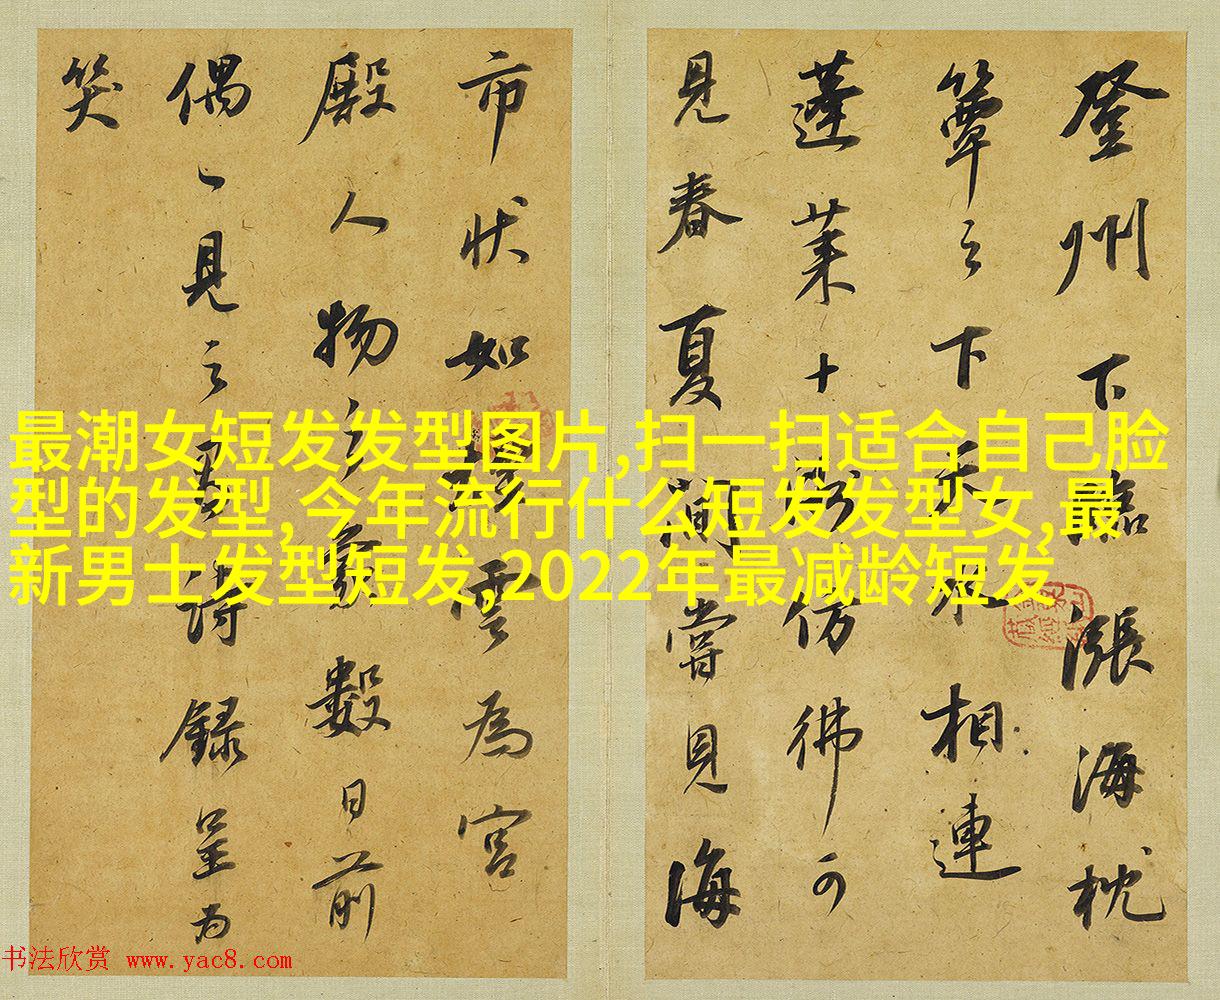 登州下臨漲海枕
簟之下天水相連
蓬莱十彷彿可
見春夏間嘗見海
市状如雲為宮
殿人物之象數日前
偶一見之詩録呈為
笑
最潮女短发发型图片,扫一扫适合自己脸
型的发型,今年流行什么短发发型女,最
新男士发型短发,2022年最减龄短发
书法欣赏 www.yac8.com